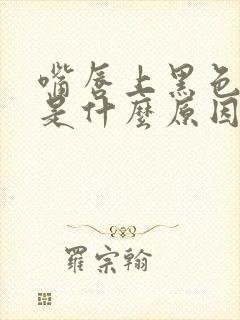 嘴唇上黑色
是什麼原因
羅宗翰